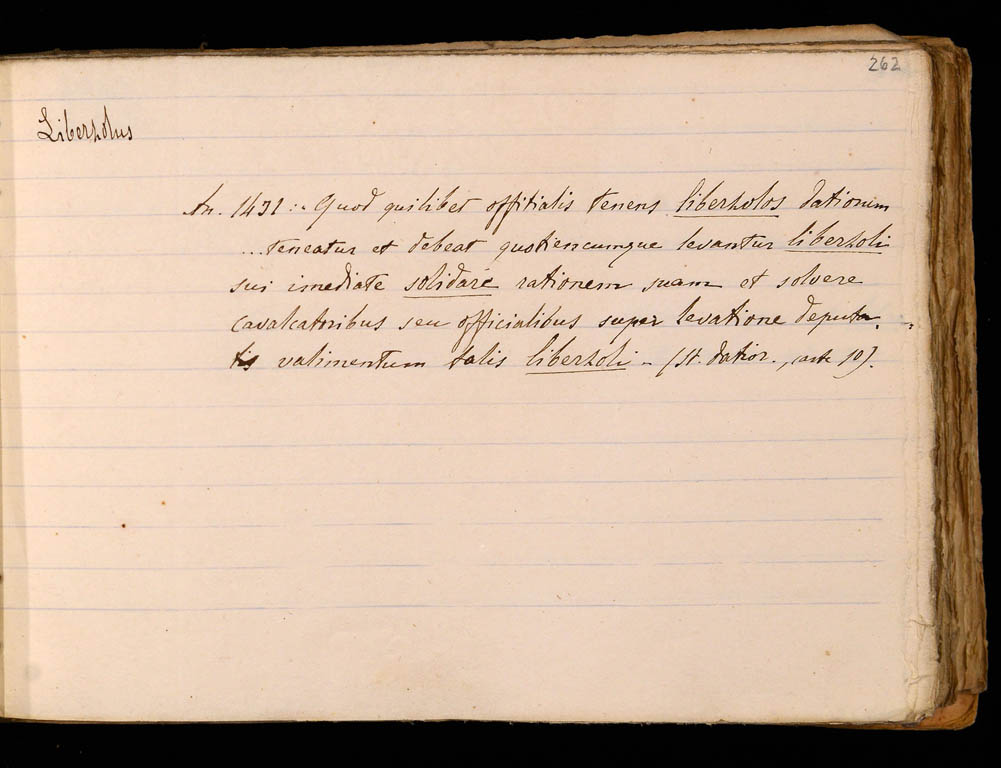 262
Liberzolus
An. 1431: - Quod quilibet offitialis tenens liberzolos dationum
...teneatur et debeat quotienscumque levantur liberzoli
sui imediate solidare rationem suam et solvere
cavalcatoribus seu officialibus super levatione deputa-
tis valimentum talis liberzoli - (St. datior., carte 19).